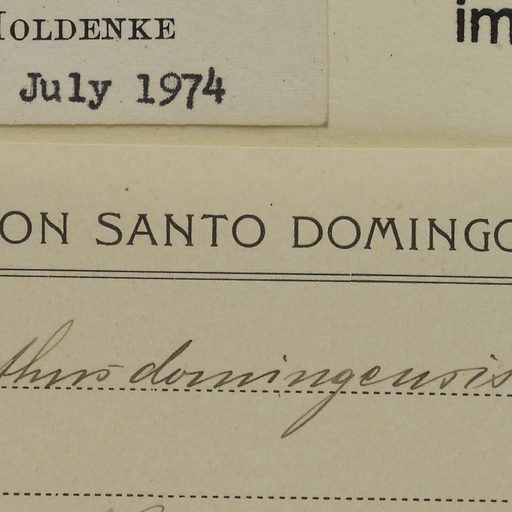 MOLDENKE
im
July 1974
ON SANTO DOMINGO
thus domingensis